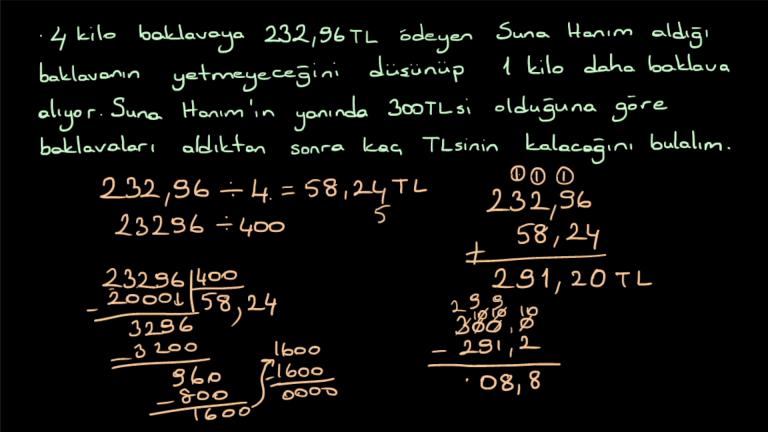 . 4 kilo baklavaya 232,96 TL ödeyen Suna Hanım aldığı
baklavanın yetmeyeceğini düşünüp 1 kilo daha baklava
alıyor. Suna Hanım'ın yanında 300TLsi olduğuna göre
baklavaları aldıktan sonra kaç TLsinin kalacağını bulalım.
232,96 ÷ 4. = 58,24 TL
5
23296 ÷ 400
23296 400
- 20001 58,24
3296
- 3200
960
- 800
1600
1600
- 1600
0000
1 1 1
232,96
58,24
+
291,20 TL
2 9 9
10 10 10
300,0
- 291,2
. 08,8